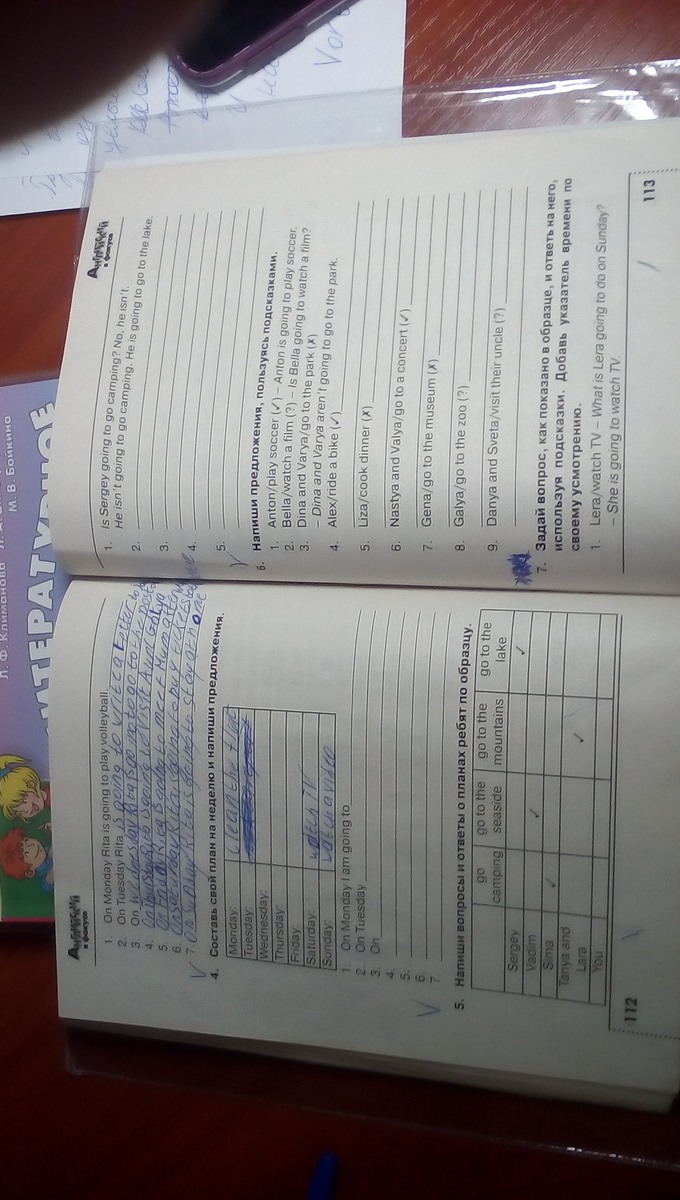 Л. Ф. Климанова
М. В. Бойкина
Английский
в фокусе
1. On Monday Rita is going to play volleyball.
2. On Tuesday Rita is going to write a letter
3. On Wednesday Rita is going to go to the
4. On Thursday Rita is going to visit Aunt
5. On Friday Rita is going to meet Mum
6. On saturday Rita is going to buy
7. On sunday Rita is going to stay at home
V
4. Составь свой план на неделю и напиши предложения.
Monday: clean the
Tuesday:
Wednesday:
Thursday
Friday:
Saturday: watch TV
Sunday: video
1 On Monday I am going to
2. On Tuesday
3. On
4.
5.
6.
7.
V
5. Напиши вопросы и ответы о планах ребят по образцу.
go camping go to the seaside go to the mountains go to the lake
Sergey ✓
Vadim ✓
Sima ✓
Tanya and Lara ✓
You
112
Английский
в фокусе
1. Is Sergey going to go camping? No, he isn't.
He isn't going to go camping. He is going to go to the lake.
2.
3.
4.
5.
V
6. Напиши предложения, пользуясь подсказками.
1. Anton/play soccer (✓) – Anton is going to play soccer.
2. Bella/watch a film (?) – Is Bella going to watch a film?
3. Dina and Varya/go to the park (✗)
– Dina and Varya aren't going to go to the park.
4. Alex/ride a bike (✓)
5. Liza/cook dinner (✗)
6. Nastya and Valya/go to a concert (✓)
7. Gena/go to the museum (✗)
8. Galya/go to the zoo (?)
9. Danya and Sveta/visit their uncle (?)
7. Задай вопрос, как показано в образце, и ответь на него,
используя подсказки. Добавь указатель времени по
своему усмотрению.
1. Lera/watch TV – What is Lera going to do on Sunday?
– She is going to watch TV.
113